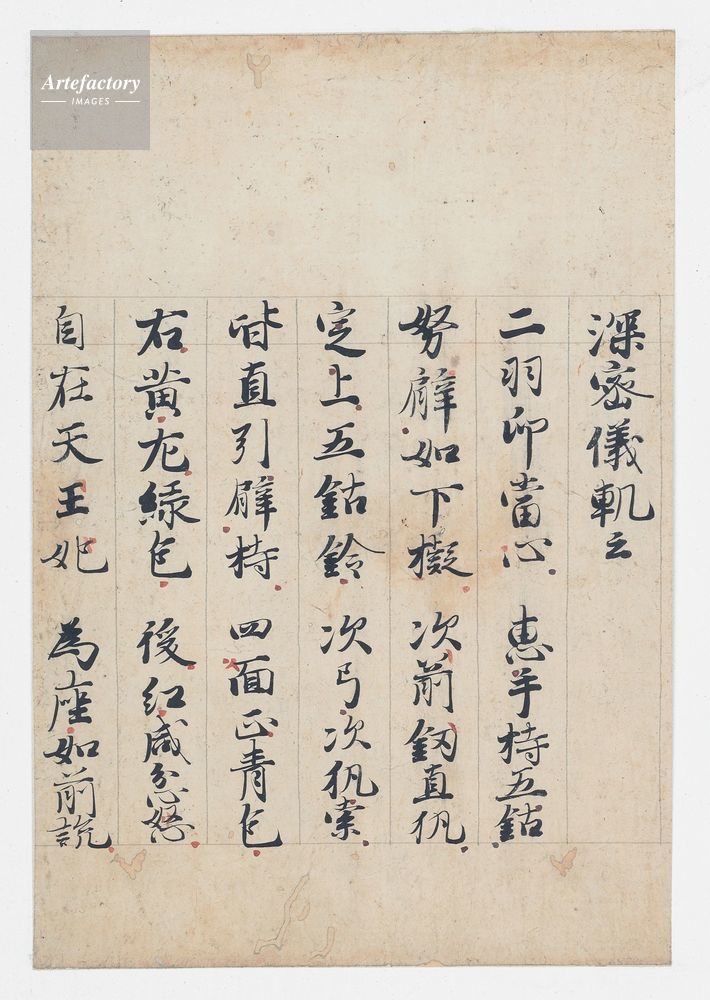 Artefactory
IMAGES
深密儀軌云
二羽印當心 恵手持五鈷
努臂如下擬 次前釼直執
定上五鈷鈴 次弓次執索
皆直引臂持 四面正青色
右黄左緑色 後紅咸忿怒
自在天王妃 為座如前説